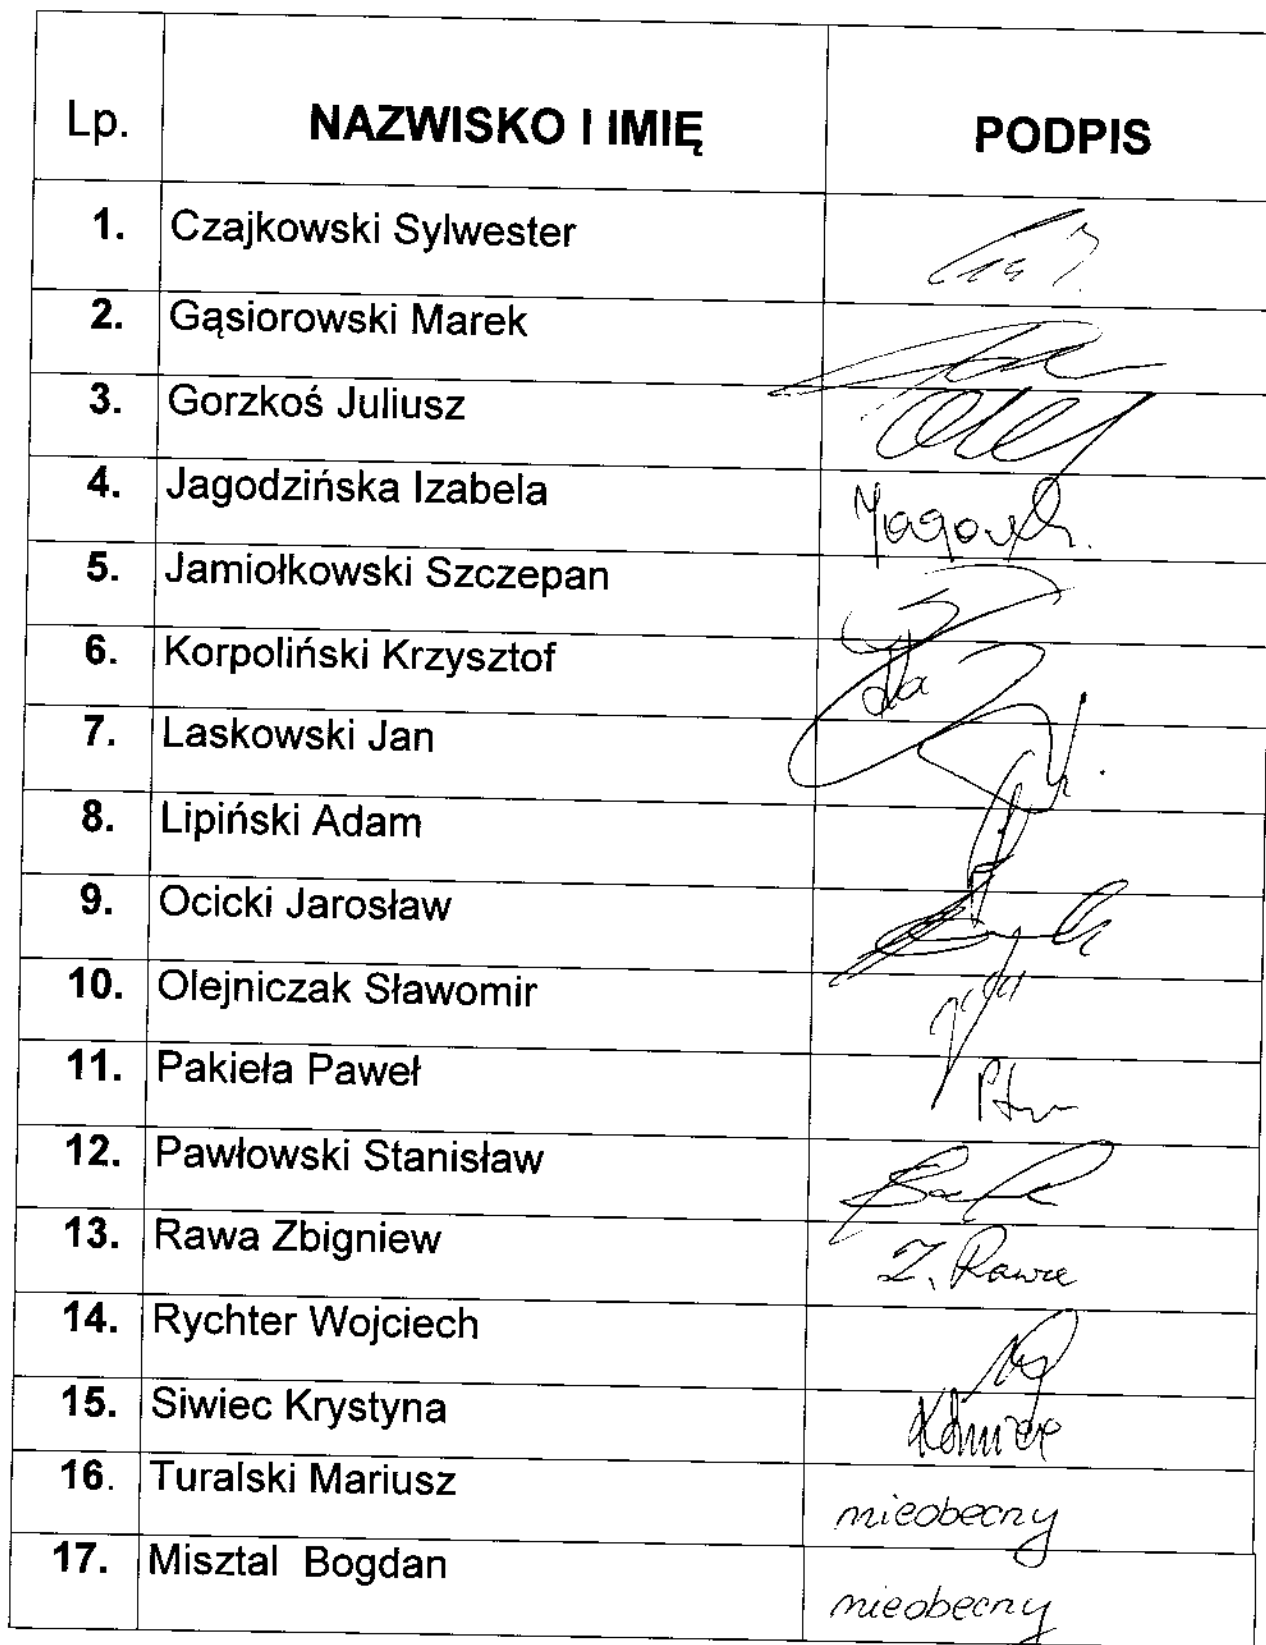 Lp. NAZWISKO I IMIĘ PODPIS
1. Czajkowski Sylwester
2. Gąsiorowski Marek
3. Gorzkoś Juliusz
4. Jagodzińska Izabela
5. Jamiołkowski Szczepan
6. Korpoliński Krzysztof
7. Laskowski Jan
8. Lipiński Adam
9. Ocicki Jarosław
10. Olejniczak Sławomir
11. Pakieła Paweł
12. Pawłowski Stanisław
13. Rawa Zbigniew Z. Rawa
14. Rychter Wojciech
15. Siwiec Krystyna
16. Turalski Mariusz nieobecny
17. Misztal Bogdan nieobecny